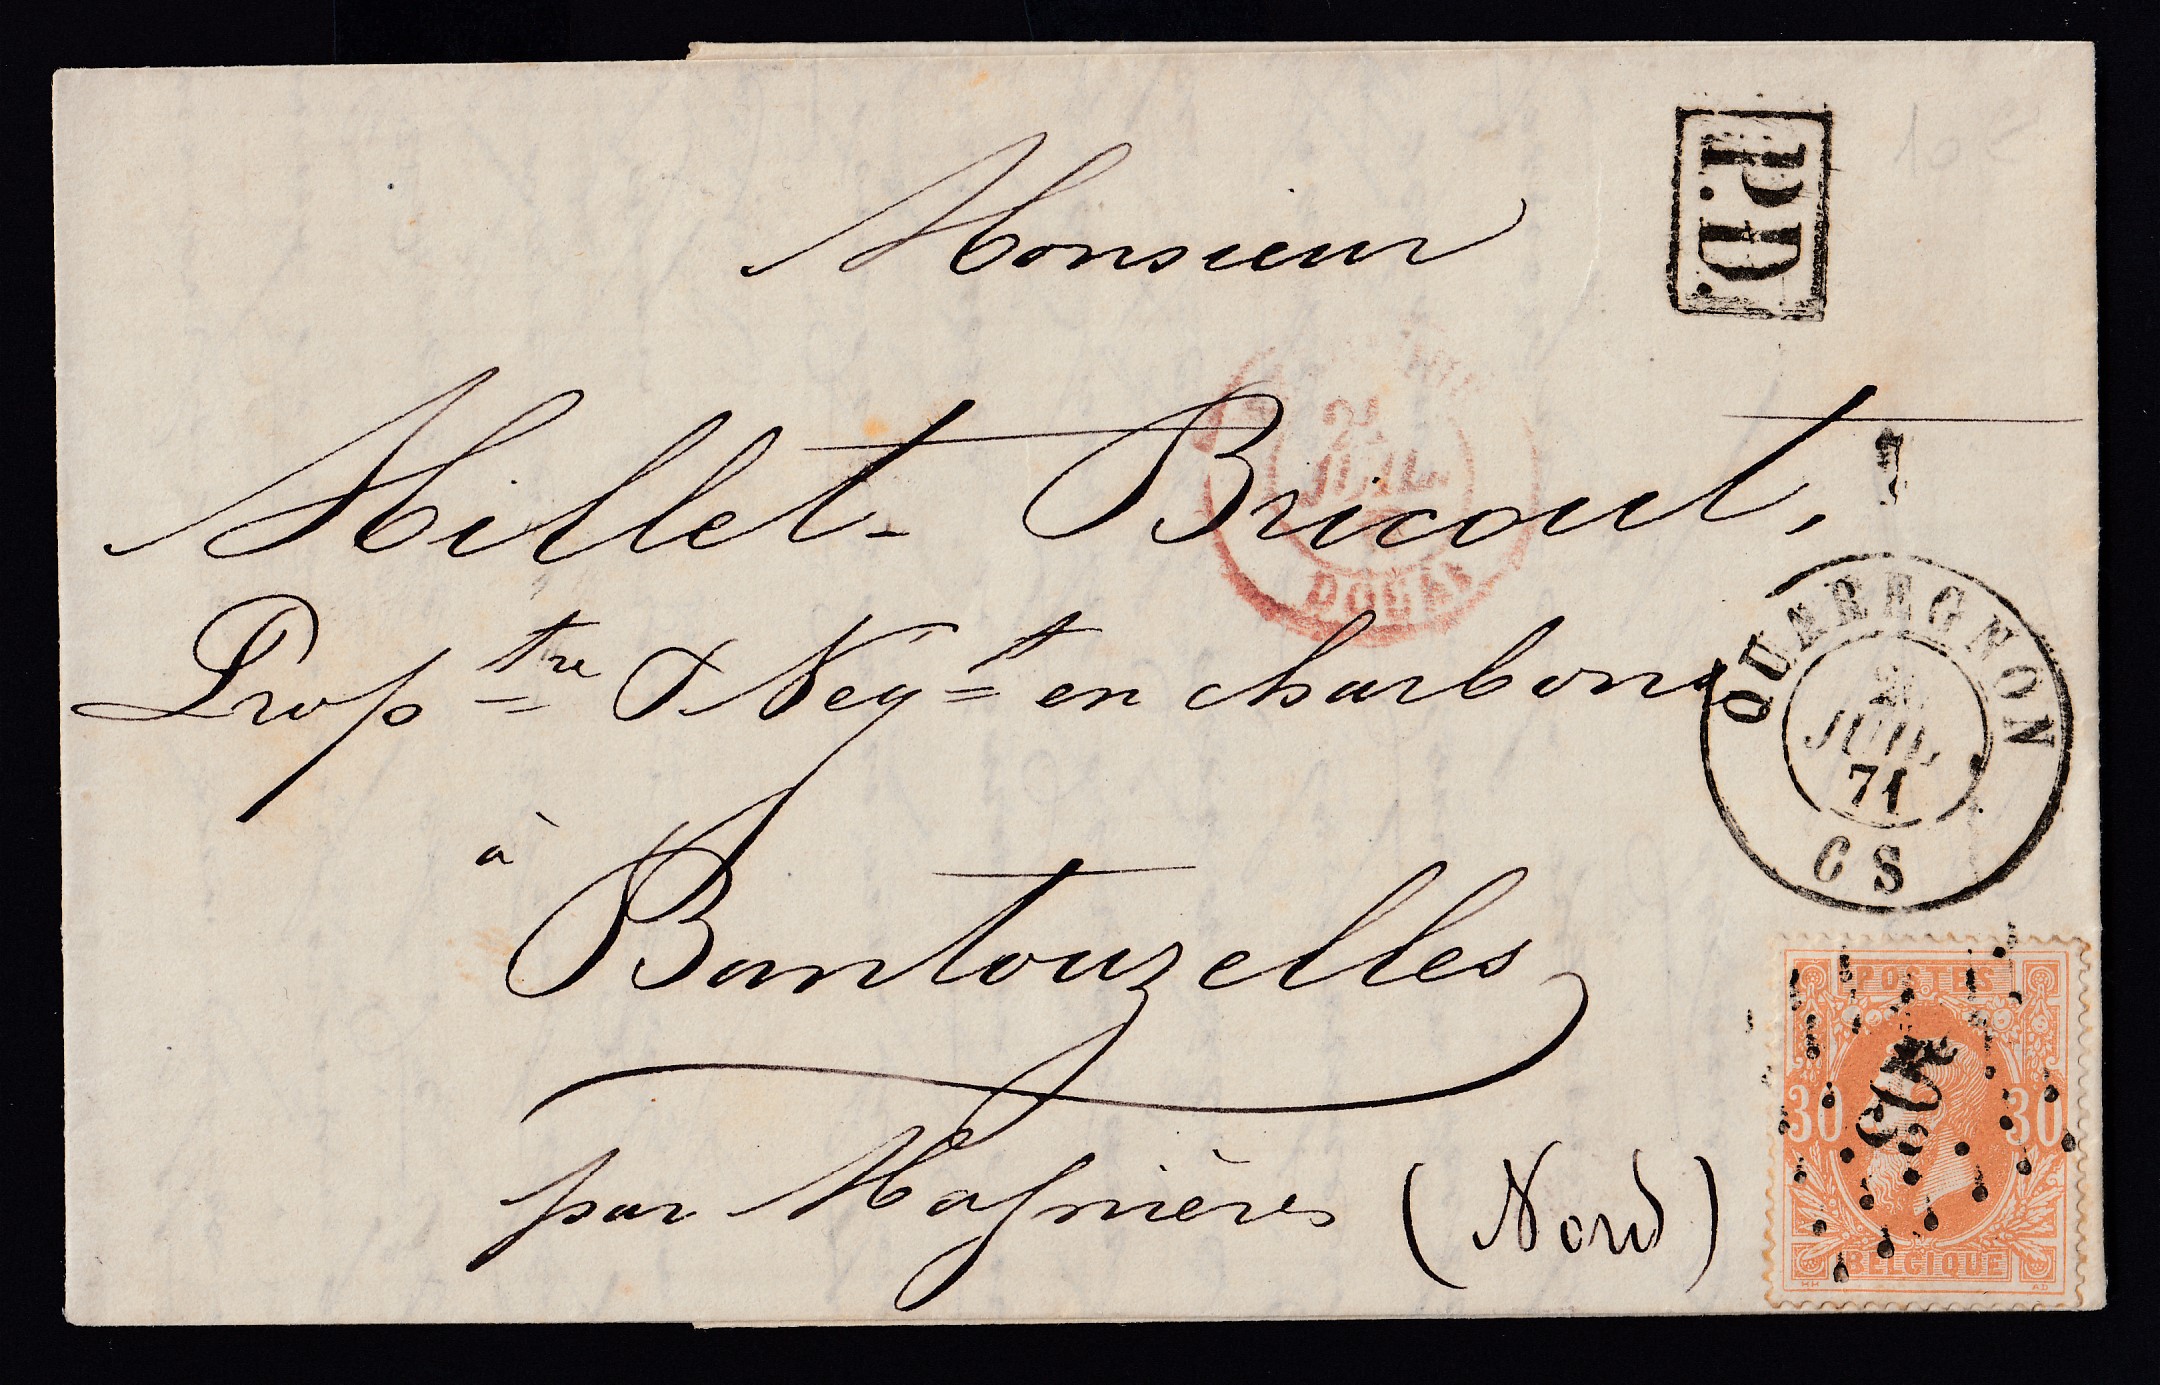 Monsieur
P.D.
Millet-Bricout,
Prop tre & Neg t en charbons
à
Bantouzelles
par Masnières (Nord)
JUIL.
DOUAI
QUAREGNON
JUIL
71
C S
POSTES
30 30
BELGIQUE